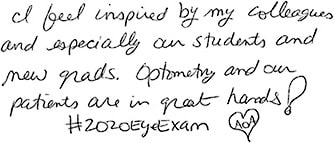 I feel inspired by my colleagues
and especially our students and
new grads. Optometry and our
patients are in great hands!
#2020EyeExam AOA